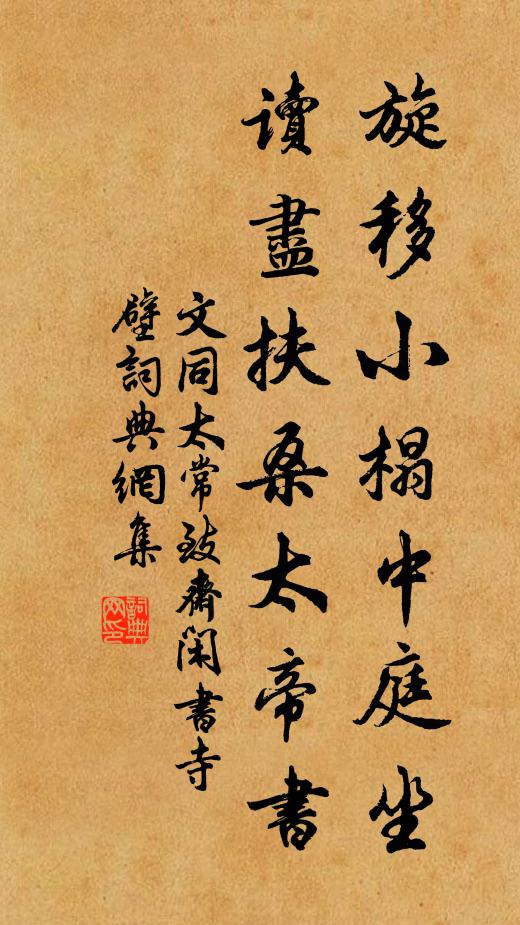 旋移小榻中庭坐
讀盡扶桑太帝書
文同太常致齋閑書寺
壁詞典網集
詞典
网印